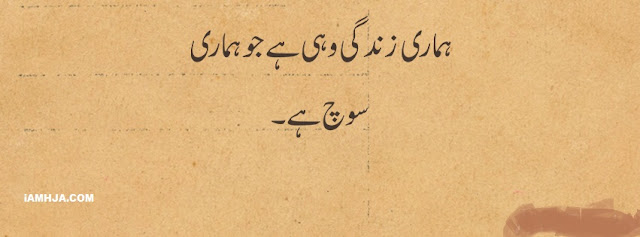 ہماری زندگی وہی ہے جو ہماری
سوچ ہے۔
iAMHJA.COM